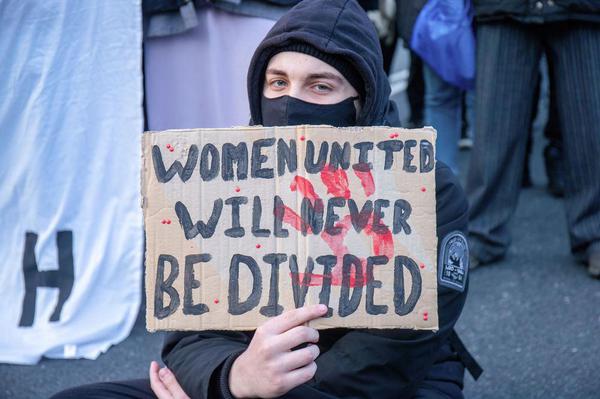 WOMEN UNITED
WILL NEVER
BE DIVIDED
H